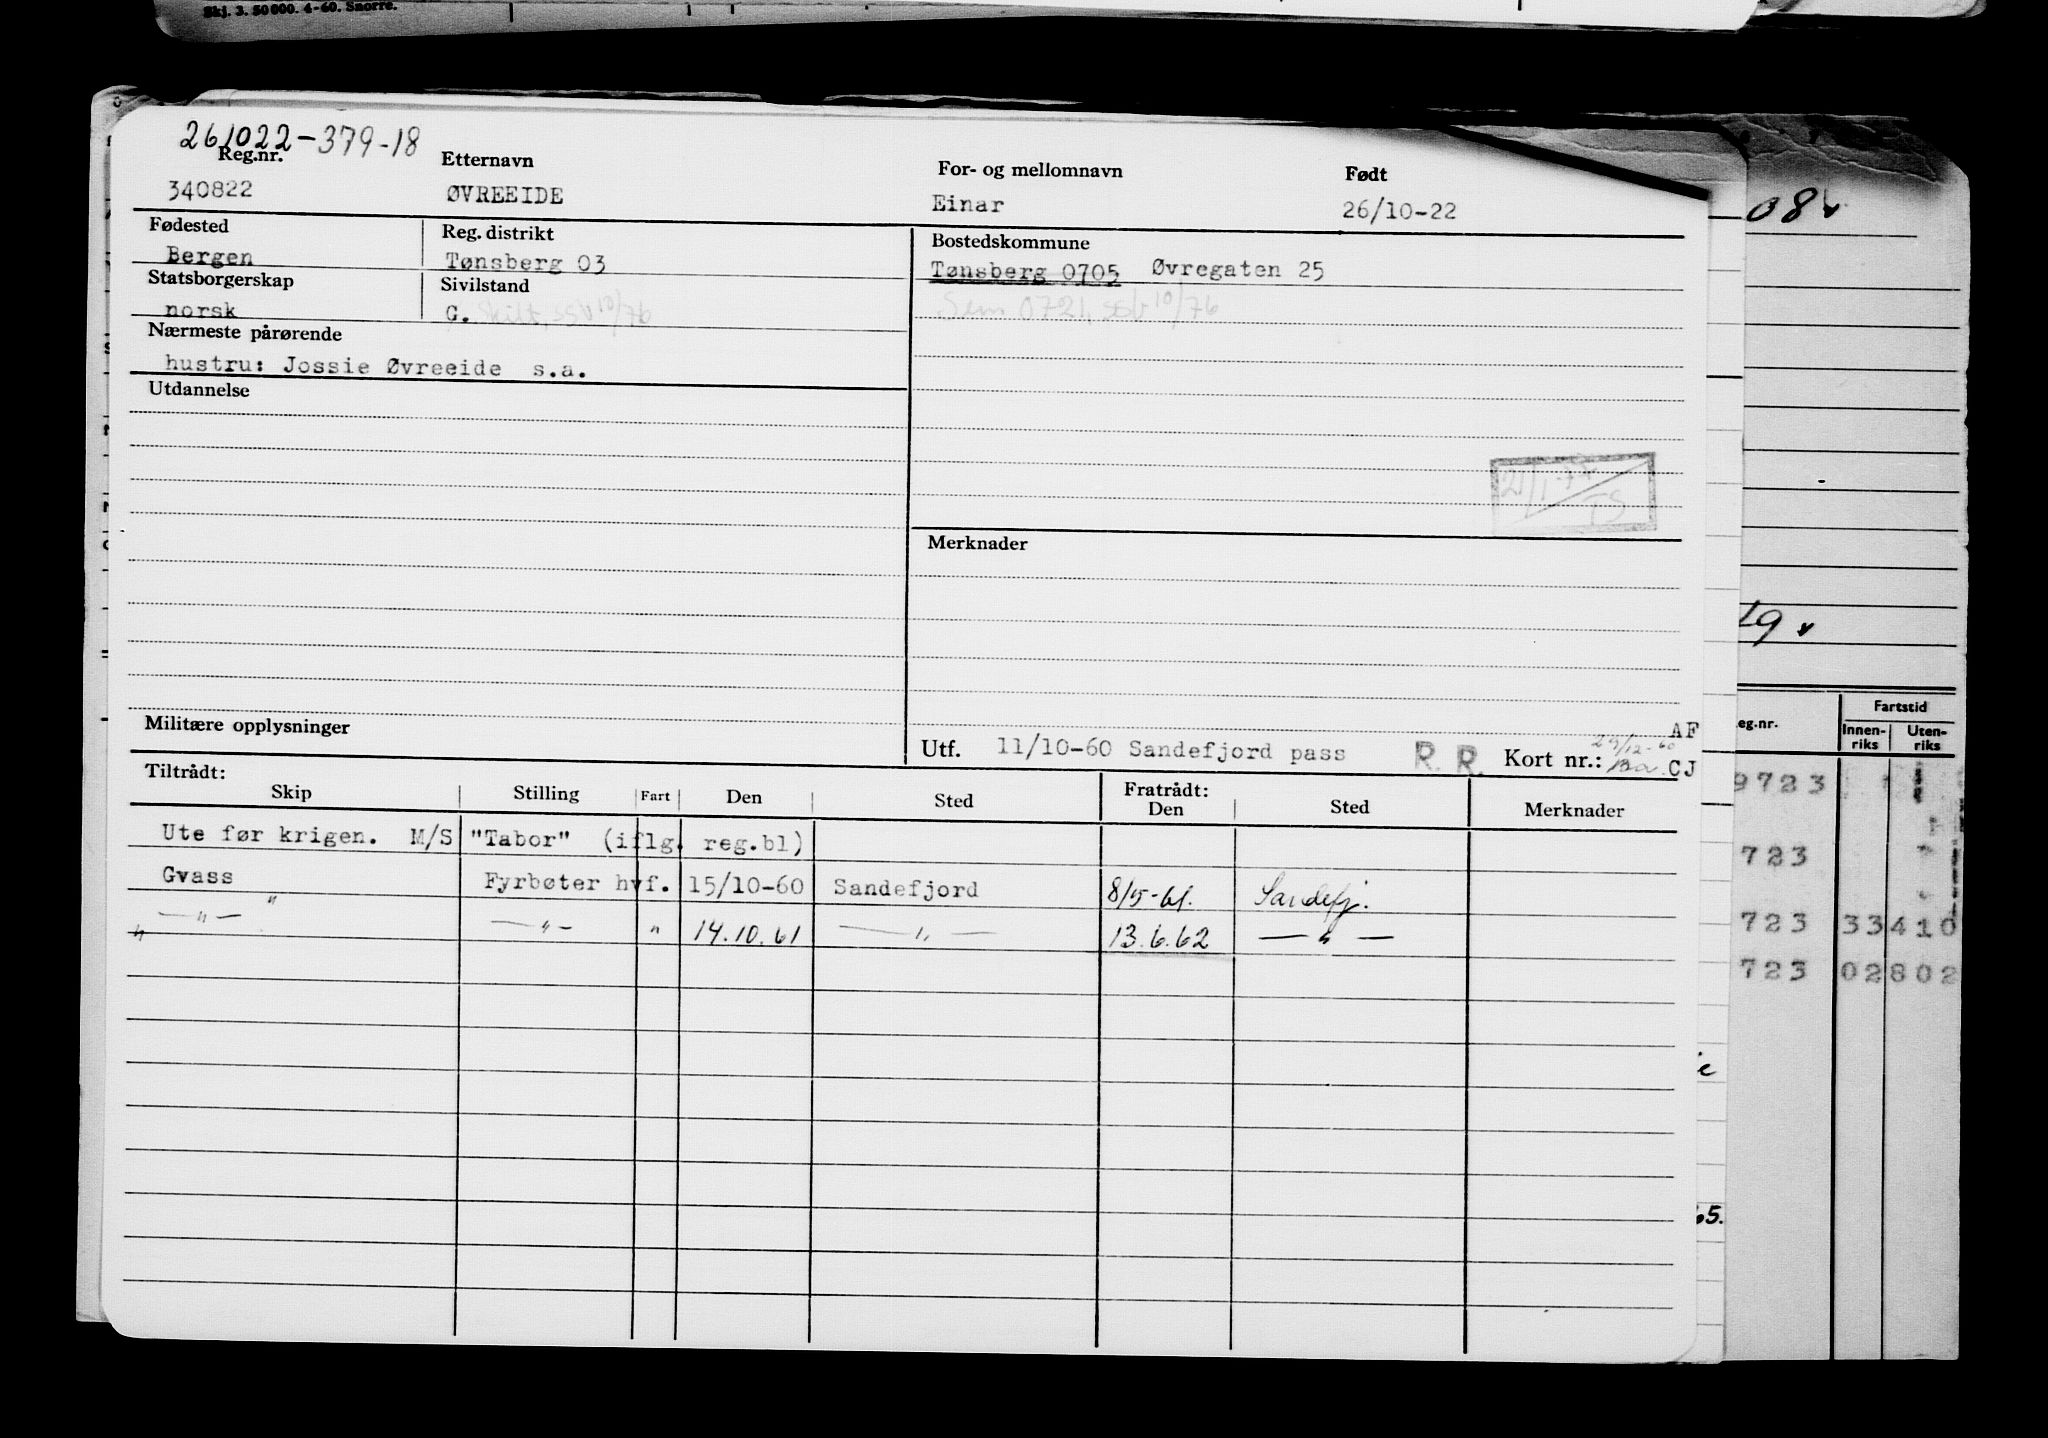 Skj. 3. 50 000. 4-60. Snorre.
261022-379-18
Reg.nr. Etternavn For- og mellomnavn Født
340822 ØVREEIDE Einar 26/10-22
Fødested Reg. distrikt Bostedskommune
Bergen Tønsberg 03 Tønsberg 0705 Øvregaten 25
Statsborgerskap Sivilstand
norsk G. Skilt, 10/76 Sem 0721, 10/76
Nærmeste pårørende
hustru: Jossie Øvreeide s.a.
Utdannelse
21/1 TS
Merknader
Militære opplysninger
AF
Utf. 11/10-60 Sandefjord pass R. R. Kort nr.: 29/12-60 CJ
Tiltrådt: Fratrådt:
Skip Stilling Fart Den Sted Den Sted Merknader
Ute før krigen. M/S "Tabor" (iflg. reg.bl)
Gvass Fyrbøter hvf. 15/10-60 Sandefjord 8/5-61. Sandefj.
" —"— " —"— " 14.10.61 —"— 13.6.62 —"—
08
19
eg.nr. Fartstid
Innen-riks Uten-riks
9723
723
723 33410
723 02802
65.